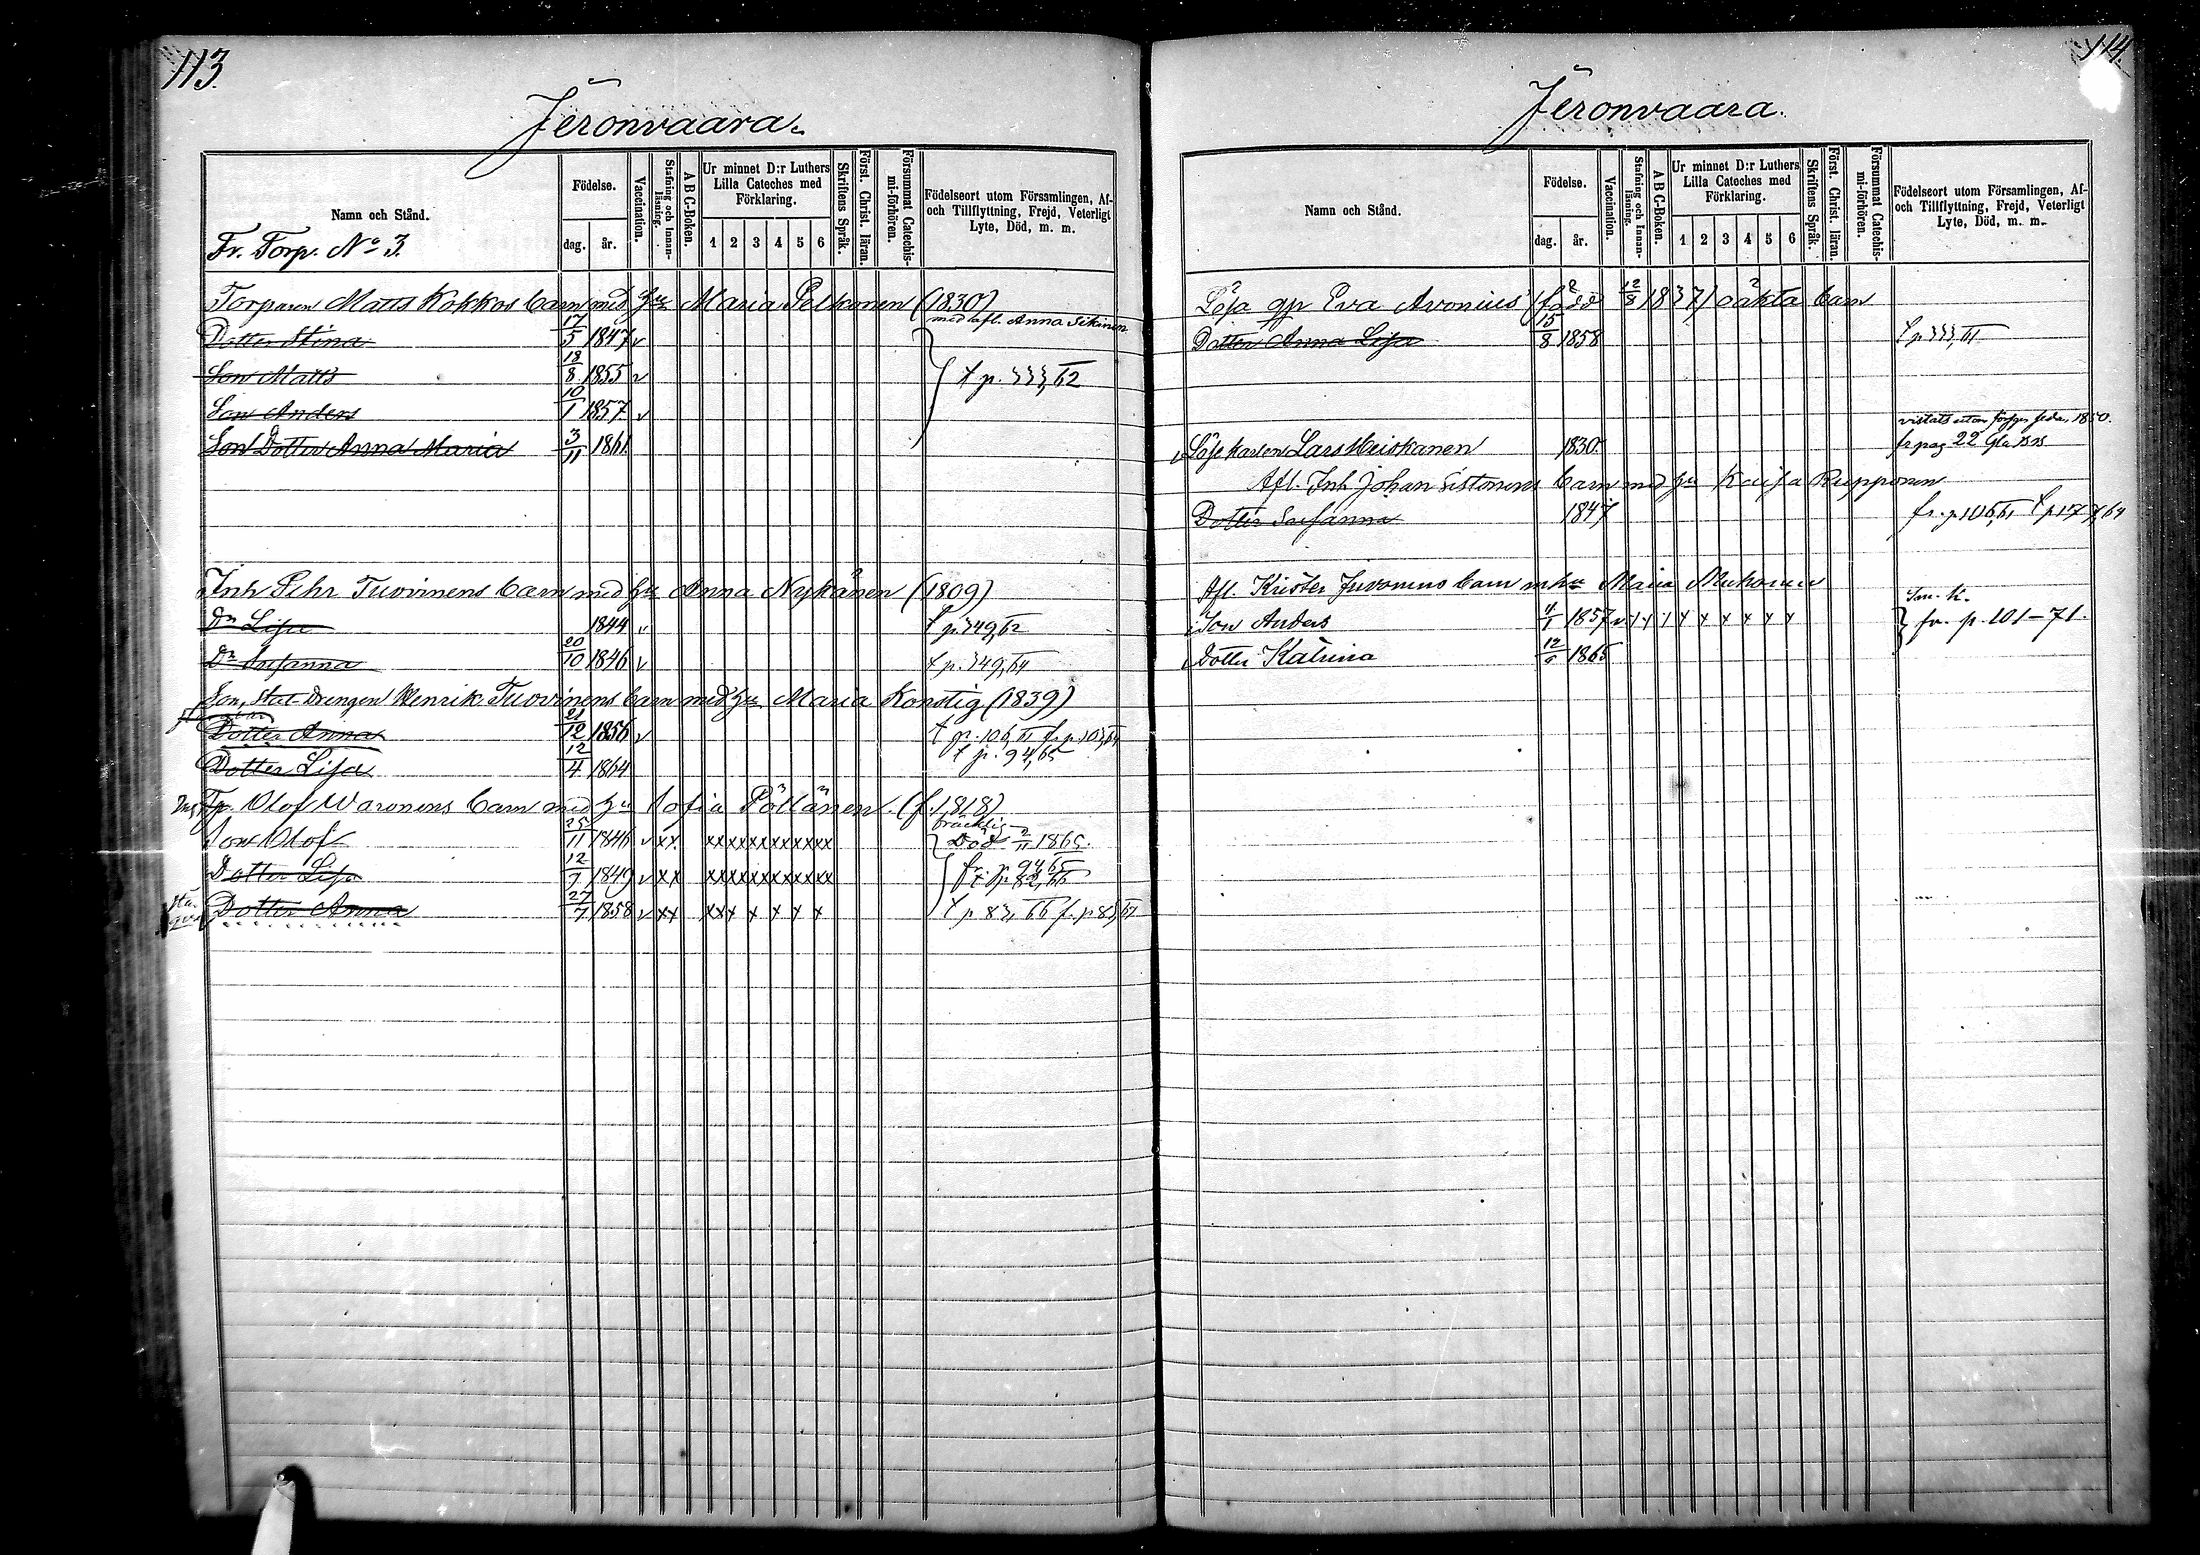 113.
Jeronvaara.
Namn och Stånd.
Fr. Torp. No 3.
Födelse.
dag. år.
Vaccination.
Stafning och Innanläsning.
A B C-Boken.
Ur minnet D:r Luthers Lilla Cateches med Förklaring.
1 2 3 4 5 6
Skriftens Språk.
Först. Christ. läran.
Försummat Catechismi-förhören.
Födelseort utom Församlingen, Af- och Tillflyttning, Frejd, Veterligt Lyte, Död, m. m.
Torparen Matts Kokkos barn med hu Maria Pelkonen (1830)
med afl. Anna Sikanen
Dotter Stina 17/5 1847 v
Son Matts 18/8 1855 v t p. 333, 62
Son Anders 10/1 1857 v
Son Dotter Anna Maria 3/11 1861
Inh Pehr Tuovinens barn med hu Anna Nykänen (1809)
Dr Lisa 1844 v t p 349, 62
Dr Susanna 20/10 1846 v t p. 349, 64
Son, Stat-Drengen Henrik Tuovinens barn med hu Maria Konstig (1839)
Dotter Anna 21/12 1856 v t p. 106, 61 fr. p. 103, 64
t p. 94, 65
Dotter Lisa 12/4 1864
Tp. Olof Waronens barn med hu Sofia Pöllänen. (f. 1818)
Son Olof 25/11 1846 v xx xxxxxxxxxxxx bräcklig Död 2/11 1865.
Dotter Lisa 12/7 1849 v xx xxxxxxxxxxxx fr. p 94 65
t p 82, 66
Dotter Anna 27/7 1858 v xx xxx x x x x t p 83, 66 f. p 83, 67
114.
Jeronvaara.
Namn och Stånd.
Födelse.
dag. år.
Vaccination.
Stafning och Innanläsning.
A B C-Boken.
Ur minnet D:r Luthers Lilla Cateches med Förklaring.
1 2 3 4 5 6
Skriftens Språk.
Först. Christ. läran.
Försummat Catechismi-förhören.
Födelseort utom Församlingen, Af- och Tillflyttning, Frejd, Veterligt Lyte, Död, m. m.
Lösa qp Eva Avonius' (född 12/8 1837) oäkta barn
Dotter Anna Lisa 15/8 1858 t p 333, 61
vistats utom förs. sedan 1850.
Lösekarlen Lars Heiskanen 1830. fr pag 22 Gla Bn
Afl. Inh Johan Sistonens barn med hu Kaisa Rupponen
Dotter Susanna 1847 fr. p 106, 61 t p 177, 64
Afl. Krister Juvonens barn m hu Maria Mukonen
Sm. K.
Son Anders 4/1 1857 v x x x x x x x x x fr. p. 101-71.
Dotter Katrina 12/6 1865